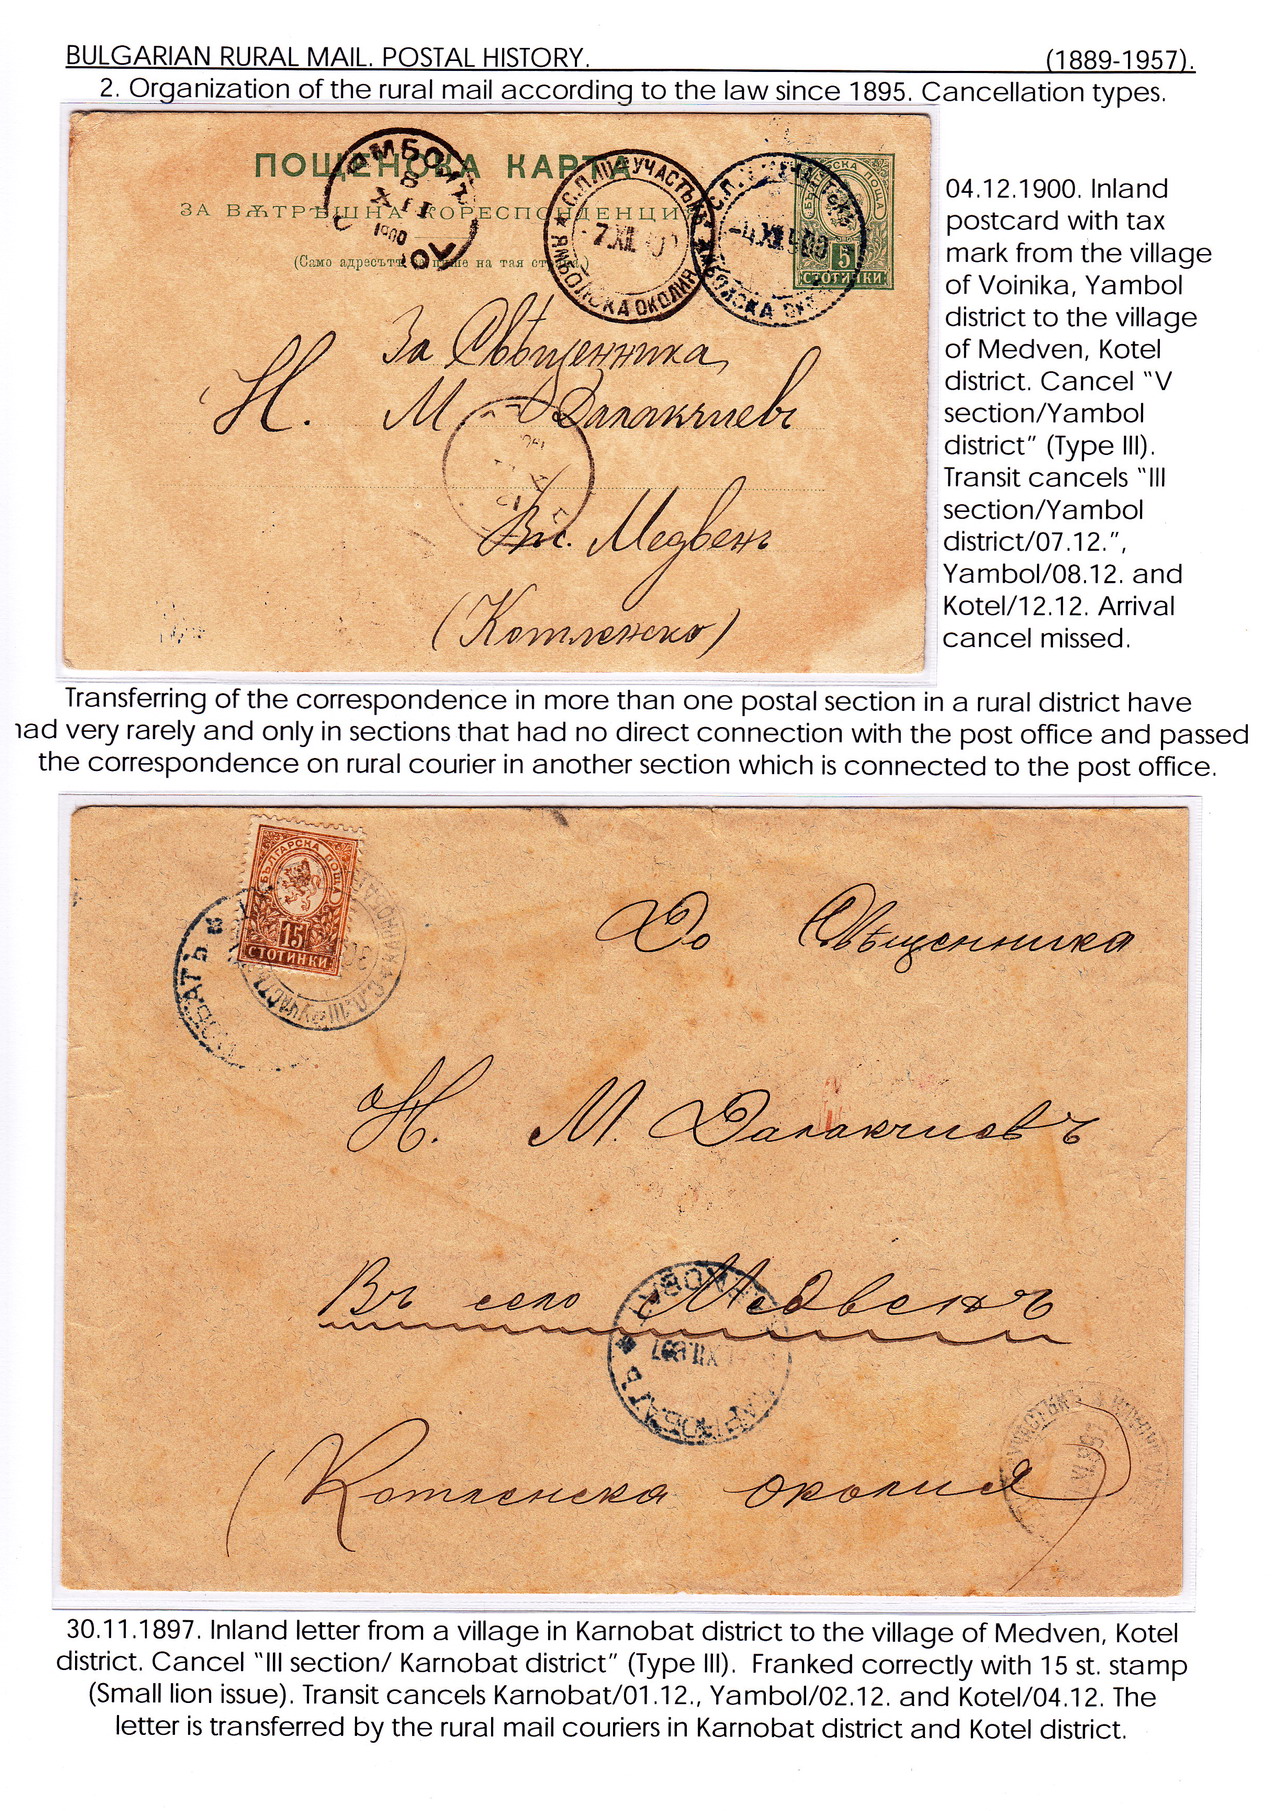 BULGARIAN RURAL MAIL. POSTAL HISTORY. (1889-1957).
2. Organization of the rural mail according to the law since 1895. Cancellation types.
ПОЩЕНСКА КАРТА
ЗА ВѪТРѢШНА КОРЕСПОНДЕНЦИЯ
(Само адресътъ се пише на тая страна)
ЯМБОЛЪ
8
XII
1900
С.П. III УЧАСТЪКЪ
7.XII.
ЯМБОЛСКА ОКОЛИЯ
-4.XII.900
5
СТОТИНКИ
За Свѣщенника
Н. М Далакчиевъ
Вс. Медвенъ
(Котленско)
04.12.1900. Inland
postcard with tax
mark from the village
of Voinika, Yambol
district to the village
of Medven, Kotel
district. Cancel “V
section/Yambol
district” (Type III).
Transit cancels “III
section/Yambol
district/07.12.”,
Yambol/08.12. and
Kotel/12.12. Arrival
cancel missed.
Transferring of the correspondence in more than one postal section in a rural district have
had very rarely and only in sections that had no direct connection with the post office and passed
the correspondence on rural courier in another section which is connected to the post office.
БЪЛГАРСКА ПОЩА
15
СТОТИНКИ
До Свѣщенника
Н. М. Далакчиевъ
Въ село Медвенъ
КАРНОБАТЪ
(Котленска околия)
30.11.1897. Inland letter from a village in Karnobat district to the village of Medven, Kotel
district. Cancel “III section/ Karnobat district” (Type III). Franked correctly with 15 st. stamp
(Small lion issue). Transit cancels Karnobat/01.12., Yambol/02.12. and Kotel/04.12. The
letter is transferred by the rural mail couriers in Karnobat district and Kotel district.